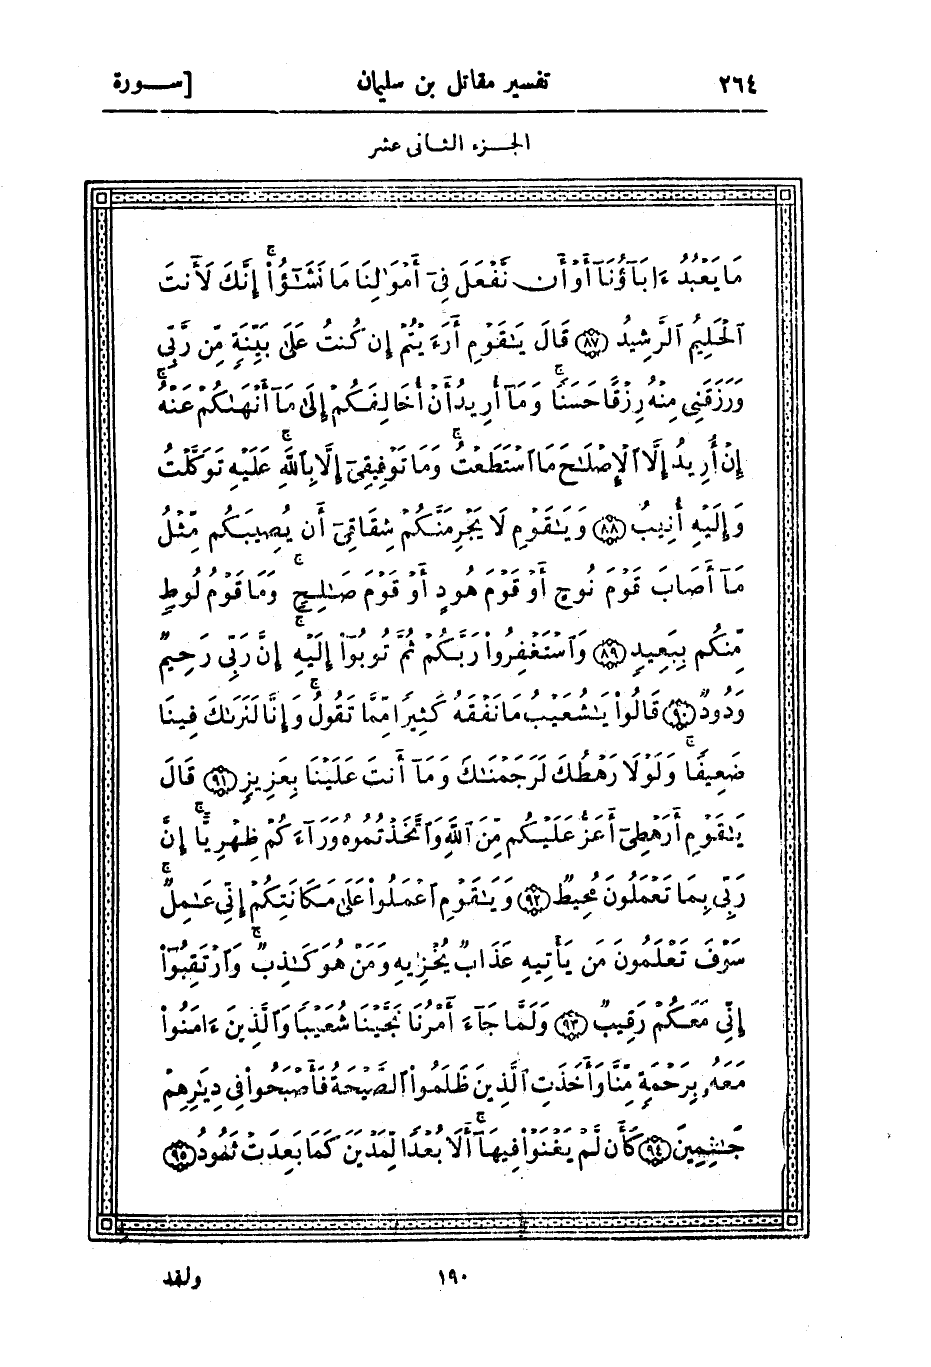 ٢٦٤ تفسير مقاتل بن سليمان [ســـورة
الجــزء الثانى عشر
مَا يَعْبُدُ ءَابَآؤُنَآ أَوْ أَن نَّفْعَلَ فِىٓ أَمْوَٰلِنَا مَا نَشَـٰٓؤُا۟ ۖ إِنَّكَ لَأَنتَ
ٱلْحَلِيمُ ٱلرَّشِيدُ ﴿٨٧﴾ قَالَ يَـٰقَوْمِ أَرَءَيْتُمْ إِن كُنتُ عَلَىٰ بَيِّنَةٍ مِّن رَّبِّى
وَرَزَقَنِى مِنْهُ رِزْقًا حَسَنًا ۚ وَمَآ أُرِيدُ أَنْ أُخَالِفَكُمْ إِلَىٰ مَآ أَنْهَىٰكُمْ عَنْهُ ۚ
إِنْ أُرِيدُ إِلَّا ٱلْإِصْلَـٰحَ مَا ٱسْتَطَعْتُ ۚ وَمَا تَوْفِيقِىٓ إِلَّا بِٱللَّهِ ۚ عَلَيْهِ تَوَكَّلْتُ
وَإِلَيْهِ أُنِيبُ ﴿٨٨﴾ وَيَـٰقَوْمِ لَا يَجْرِمَنَّكُمْ شِقَاقِىٓ أَن يُصِيبَكُم مِّثْلُ
مَآ أَصَابَ قَوْمَ نُوحٍ أَوْ قَوْمَ هُودٍ أَوْ قَوْمَ صَـٰلِحٍ ۚ وَمَا قَوْمُ لُوطٍ
مِّنكُم بِبَعِيدٍ ﴿٨٩﴾ وَٱسْتَغْفِرُوا۟ رَبَّكُمْ ثُمَّ تُوبُوٓا۟ إِلَيْهِ ۚ إِنَّ رَبِّى رَحِيمٌ
وَدُودٌ ﴿٩٠﴾ قَالُوا۟ يَـٰشُعَيْبُ مَا نَفْقَهُ كَثِيرًا مِّمَّا تَقُولُ ۚ وَإِنَّا لَنَرَىٰكَ فِينَا
ضَعِيفًا ۚ وَلَوْلَا رَهْطُكَ لَرَجَمْنَـٰكَ وَمَآ أَنتَ عَلَيْنَا بِعَزِيزٍ ﴿٩١﴾ قَالَ
يَـٰقَوْمِ أَرَهْطِىٓ أَعَزُّ عَلَيْكُم مِّنَ ٱللَّهِ وَٱتَّخَذْتُمُوهُ وَرَآءَكُمْ ظِهْرِيًّا ۚ إِنَّ
رَبِّى بِمَا تَعْمَلُونَ مُحِيطٌ ﴿٩٢﴾ وَيَـٰقَوْمِ ٱعْمَلُوا۟ عَلَىٰ مَكَانَتِكُمْ إِنِّى عَـٰمِلٌ ۚ
سَوْفَ تَعْلَمُونَ مَن يَأْتِيهِ عَذَابٌ يُخْزِيهِ وَمَنْ هُوَ كَـٰذِبٌ ۚ وَٱرْتَقِبُوٓا۟
إِنِّى مَعَكُمْ رَقِيبٌ ﴿٩٣﴾ وَلَمَّا جَآءَ أَمْرُنَا نَجَّيْنَا شُعَيْبًا وَٱلَّذِينَ ءَامَنُوا۟
مَعَهُۥ بِرَحْمَةٍ مِّنَّا وَأَخَذَتِ ٱلَّذِينَ ظَلَمُوا۟ ٱلصَّيْحَةُ فَأَصْبَحُوا۟ فِى دِيَـٰرِهِمْ
جَـٰثِمِينَ ﴿٩٤﴾ كَأَن لَّمْ يَغْنَوْا۟ فِيهَآ ۚ أَلَا بُعْدًا لِّمَدْيَنَ كَمَا بَعِدَتْ ثَمُودُ ﴿٩٥﴾
١٩٠ ولقد